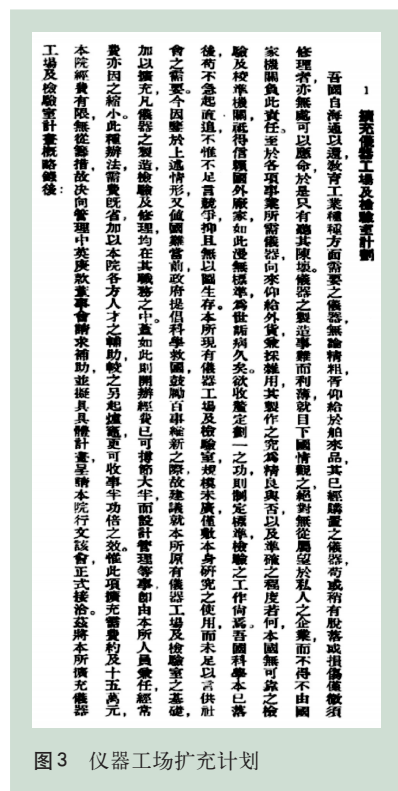 1 擴充儀器工場及檢驗室計劃
吾國自海通以還教育工業種種方面需要之儀器無論精粗胥仰給於舶來品其已經購置之儀器苟或稍有脫落或損傷僅微須
修理者亦無處可以應命於是只有聽其陳壞儀器之製造事難而利薄就目下國情觀之絕對無從屬望於私人之企業而不得不由國
家機關負此責任至於各項事業所需儀器向來仰給外貨兼採雜用其製作之究為精良與否以及準確之程度若何本國無可靠之檢
驗及校準機關祇得信賴國外廠家如此漫無標準為世詬病久矣欲收釐定劃一之功則制定標準檢驗之工作尚焉吾國科學本已落
後苟不急起直追不惟不足言競爭抑且無以圖生存本所現有儀器工場及檢驗室規模未廣僅敷本身研究之使用而未足以言供社
會之需要今因鑒於上述情形又值國難當前政府提倡科學救國鼓勵百事維新之際故建議就本所原有儀器工場及檢驗室之基礎
加以擴充凡儀器之製造檢驗及修理均在其職務之中蓋如此則開辦經費已可撙節大半而設計管理等事卽由本所人員兼任經常
費亦因之縮小此種辦法需費旣省加以本院各方人才之輔助較之另起爐竈更可收事半功倍之效惟此項擴充需費約及十五萬元
本院經費有限無從籌措故决向管理中英庚款董事會請求補助並擬具具體計畫呈請本院行文該會正式接洽茲將本所擴充儀器
工場及檢驗室計畫概略錄後：
图3 仪器工场扩充计划